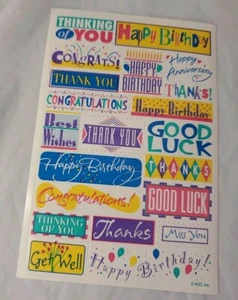 THINKING
of YOU
Happy Birthday
CONGRATS!
HAPPY
BIRTHDAY
Happy
Anniversary
THANK YOU
THANKS!
CONGRATULATIONS
Happy Birthday
Best
Wishes
THANK YOU
GOOD
LUCK
Happy Birthday
THANKS
Congratulations!
GOOD LUCK
THINKING
OF YOU
Thanks
Miss You
Get Well
Happy Birthday!
© AGC, Inc.